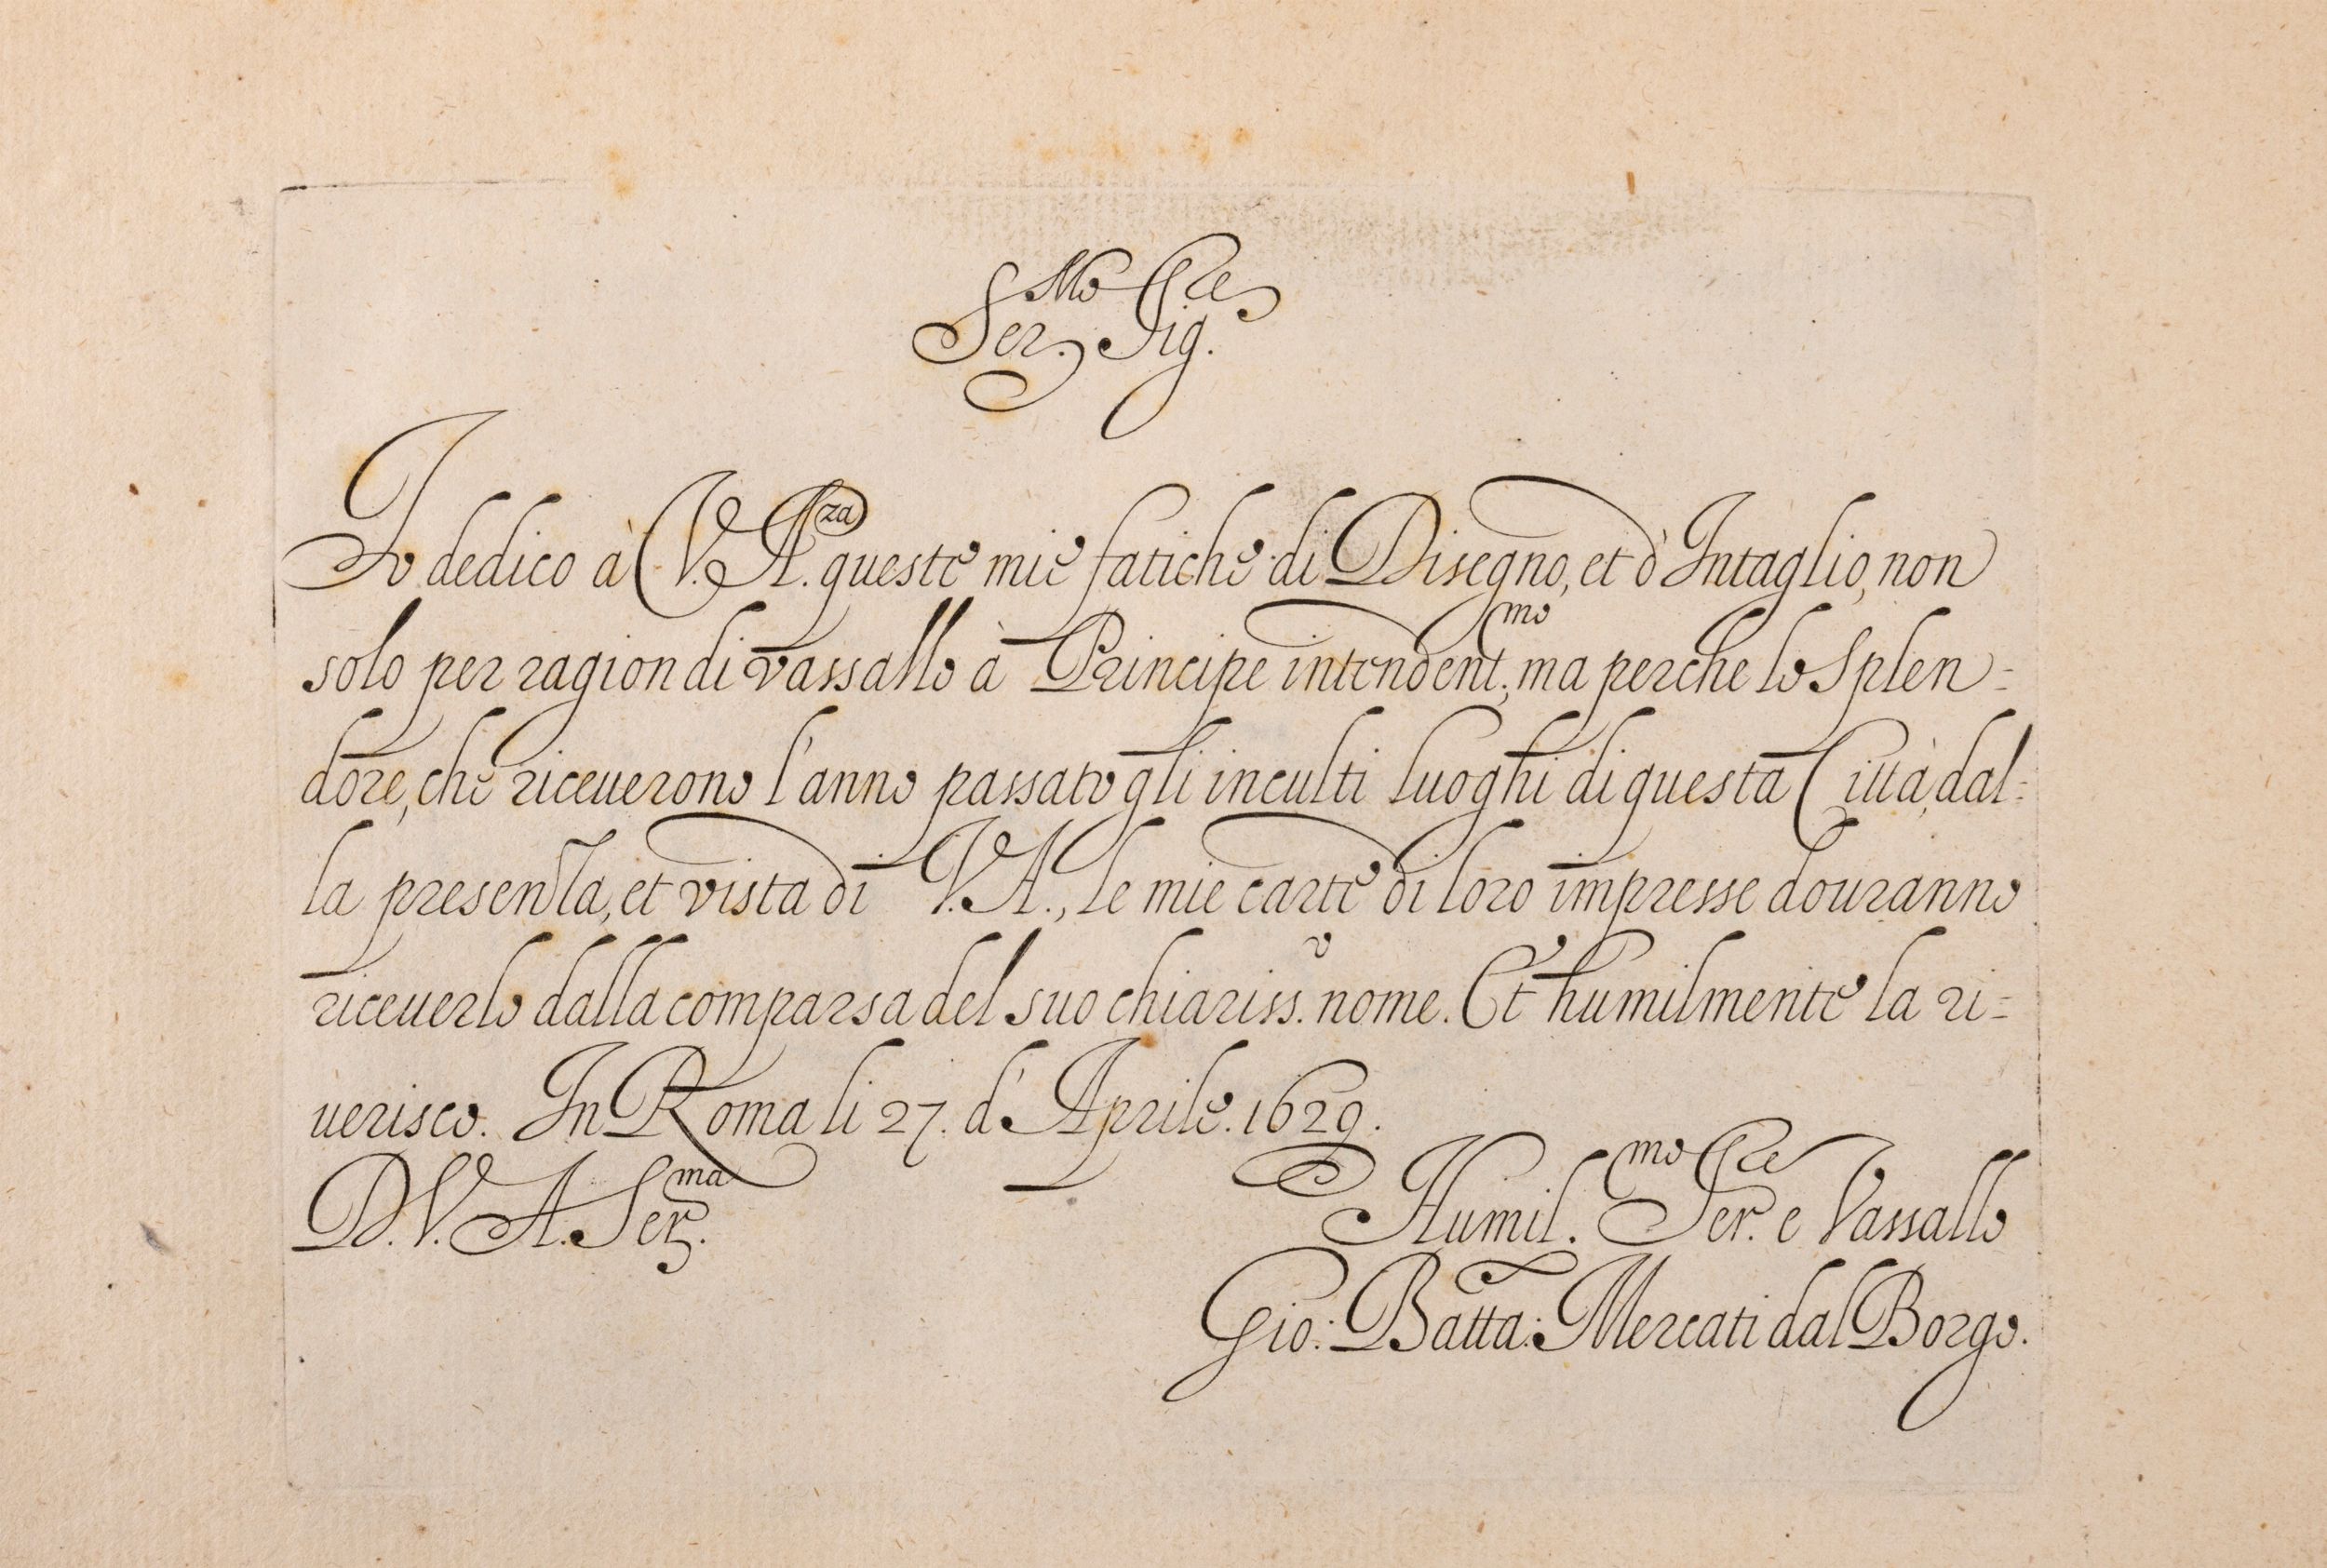 Ser.mo Sig.re
Io dedico à V. A.za queste mie fatiche di Disegno, et d'Intaglio, non
solo per ragion di vassallo à Principe intendent.mo; ma perche lo Splen=
dore, che riceuerono l'anno passato gli inculti luoghi di questa Città, dal=
la presenza, et vista di V. A., le mie carte di loro impresse douranno
riceuerlo dalla comparsa del suo chiariss.o nome. Et humilmente la ri=
uerisco. In Roma li 27. d'Aprile. 1629.
D. V. A. Ser.ma
Humil.mo Ser.re e Vassallo
Gio: Batta: Mercati dal Borgo.